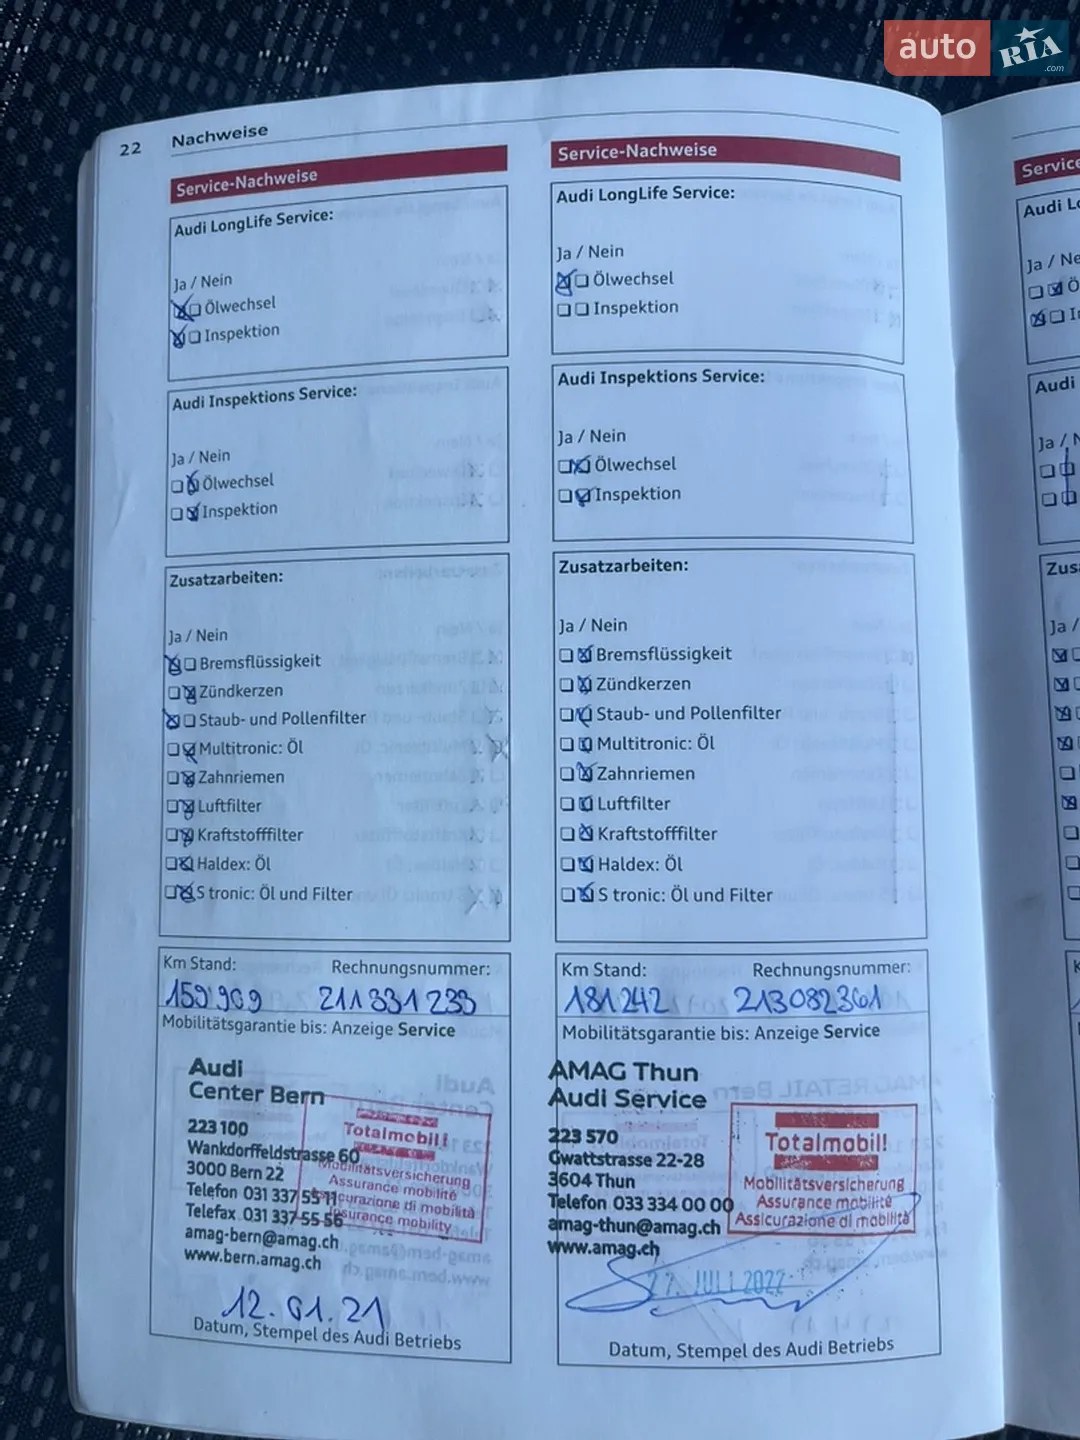 auto RIA .com
22 Nachweise
Service-Nachweise
Audi LongLife Service:
Ja / Nein
Ölwechsel
Inspektion
Audi Inspektions Service:
Ja / Nein
Ölwechsel
Inspektion
Zusatzarbeiten:
Ja / Nein
Bremsflüssigkeit
Zündkerzen
Staub- und Pollenfilter
Multitronic: Öl
Zahnriemen
Luftfilter
Kraftstofffilter
Haldex: Öl
S tronic: Öl und Filter
Km Stand: Rechnungsnummer:
159 909 211 331 233
Mobilitätsgarantie bis: Anzeige Service
Audi
Center Bern
223 100
Wankdorffeldstrasse 60
3000 Bern 22
Telefon 031 337 55 11
Telefax 031 337 55 56
amag-bern@amag.ch
www.bern.amag.ch
Totalmobil!
Mobilitätsversicherung
Assurance mobilité
Assicurazione di mobilità
Insurance mobility
12.01.21
Datum, Stempel des Audi Betriebs
Service-Nachweise
Audi LongLife Service:
Ja / Nein
Ölwechsel
Inspektion
Audi Inspektions Service:
Ja / Nein
Ölwechsel
Inspektion
Zusatzarbeiten:
Ja / Nein
Bremsflüssigkeit
Zündkerzen
Staub- und Pollenfilter
Multitronic: Öl
Zahnriemen
Luftfilter
Kraftstofffilter
Haldex: Öl
S tronic: Öl und Filter
Km Stand: Rechnungsnummer:
181242 213082361
Mobilitätsgarantie bis: Anzeige Service
AMAG Thun
Audi Service
223 570
Gwattstrasse 22-28
3604 Thun
Telefon 033 334 00 00
amag-thun@amag.ch
www.amag.ch
Totalmobil!
Mobilitätsversicherung
Assurance mobilité
Assicurazione di mobilità
27. JULI 2022
Datum, Stempel des Audi Betriebs
Service
Audi
Ja /
Audi
Ja /
Ja /